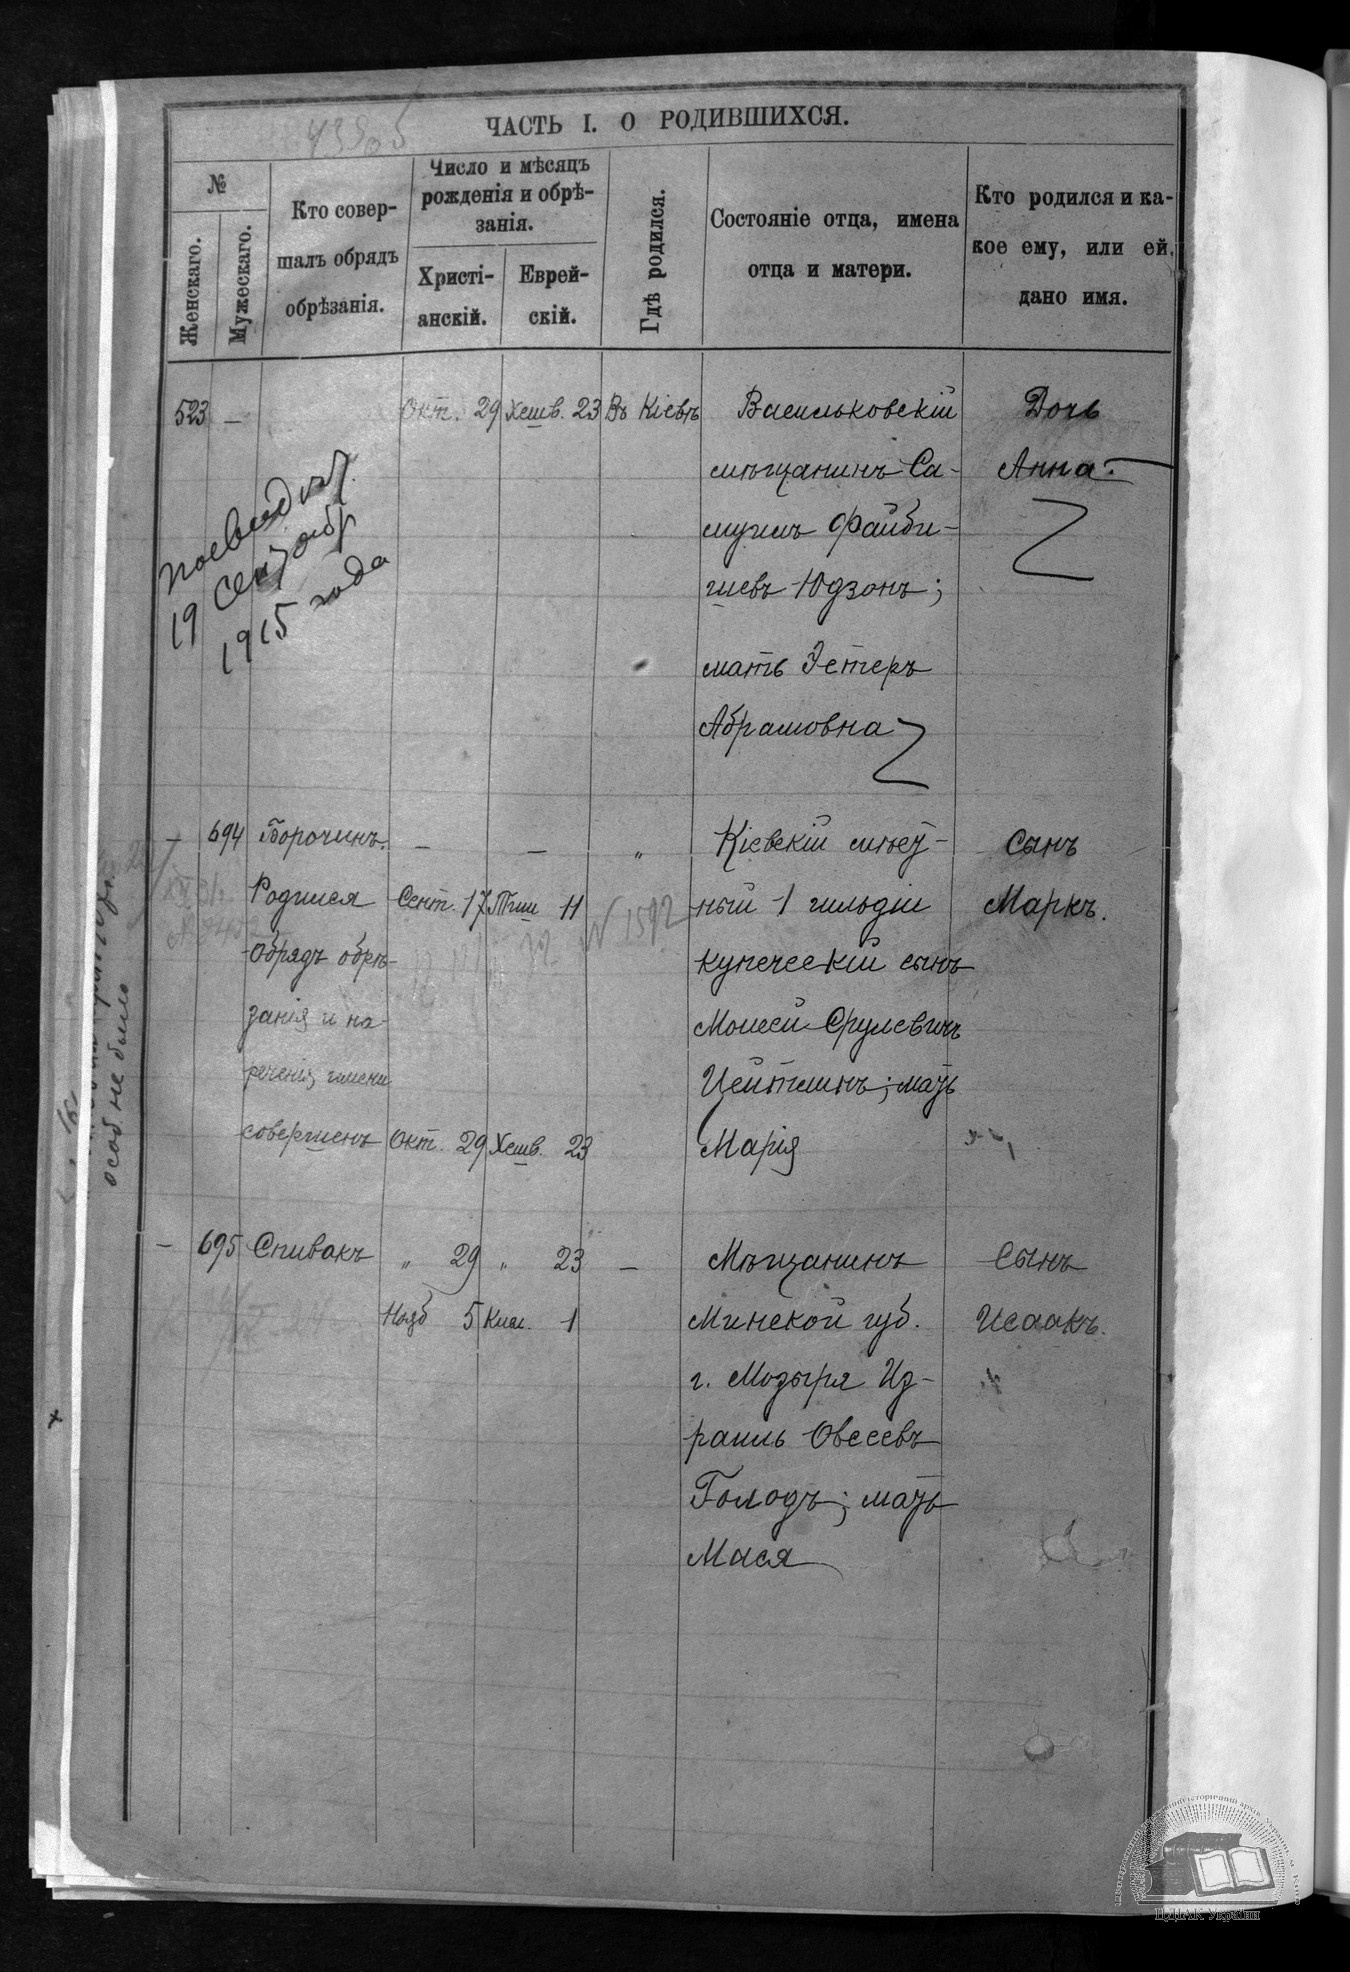 ЧАСТЬ I. О РОДИВШИХСЯ.
№
Женскаго.
Мужескаго.
Кто совер-
шалъ обрядъ
обрѣзанія.
Число и мѣсяцъ
рожденія и обрѣ-
занія.
Христі-
анскій.
Еврей-
скій.
Гдѣ родился.
Состояніе отца, имена
отца и матери.
Кто родился и ка-
кое ему, или ей,
дано имя.
523 — Окт. 29 Хешв. 23 Въ Кіевѣ Васильковскій Дочь
мѣщанинъ Са- Анна.
муилъ Файби-
шевъ Юдзонъ;
мать Эстеръ
Абрамовна
19
1915 года
— 694 Борочинъ. — — „ Кіевскій Сынъ
Родился Сент. 17 Тиш 11 ный 1 гильдіи Маркъ.
Обрядъ обрѣ- купеческій сынъ
занія и на- Моисей Срулевичъ
реченія имени Цейтлинъ; мать
совершенъ Окт. 29 Хешв. 23 Марія
№ 1592
особ не было
— 695 Спивакъ „ 29 „ 23 — Мѣщанинъ Сынъ
Нояб 5 Кисл. 1 Минской губ. Исаакъ.
г. Мозыря Из-
раиль Овсеевъ
Голодъ; мать
Мася
ЦДІАК України